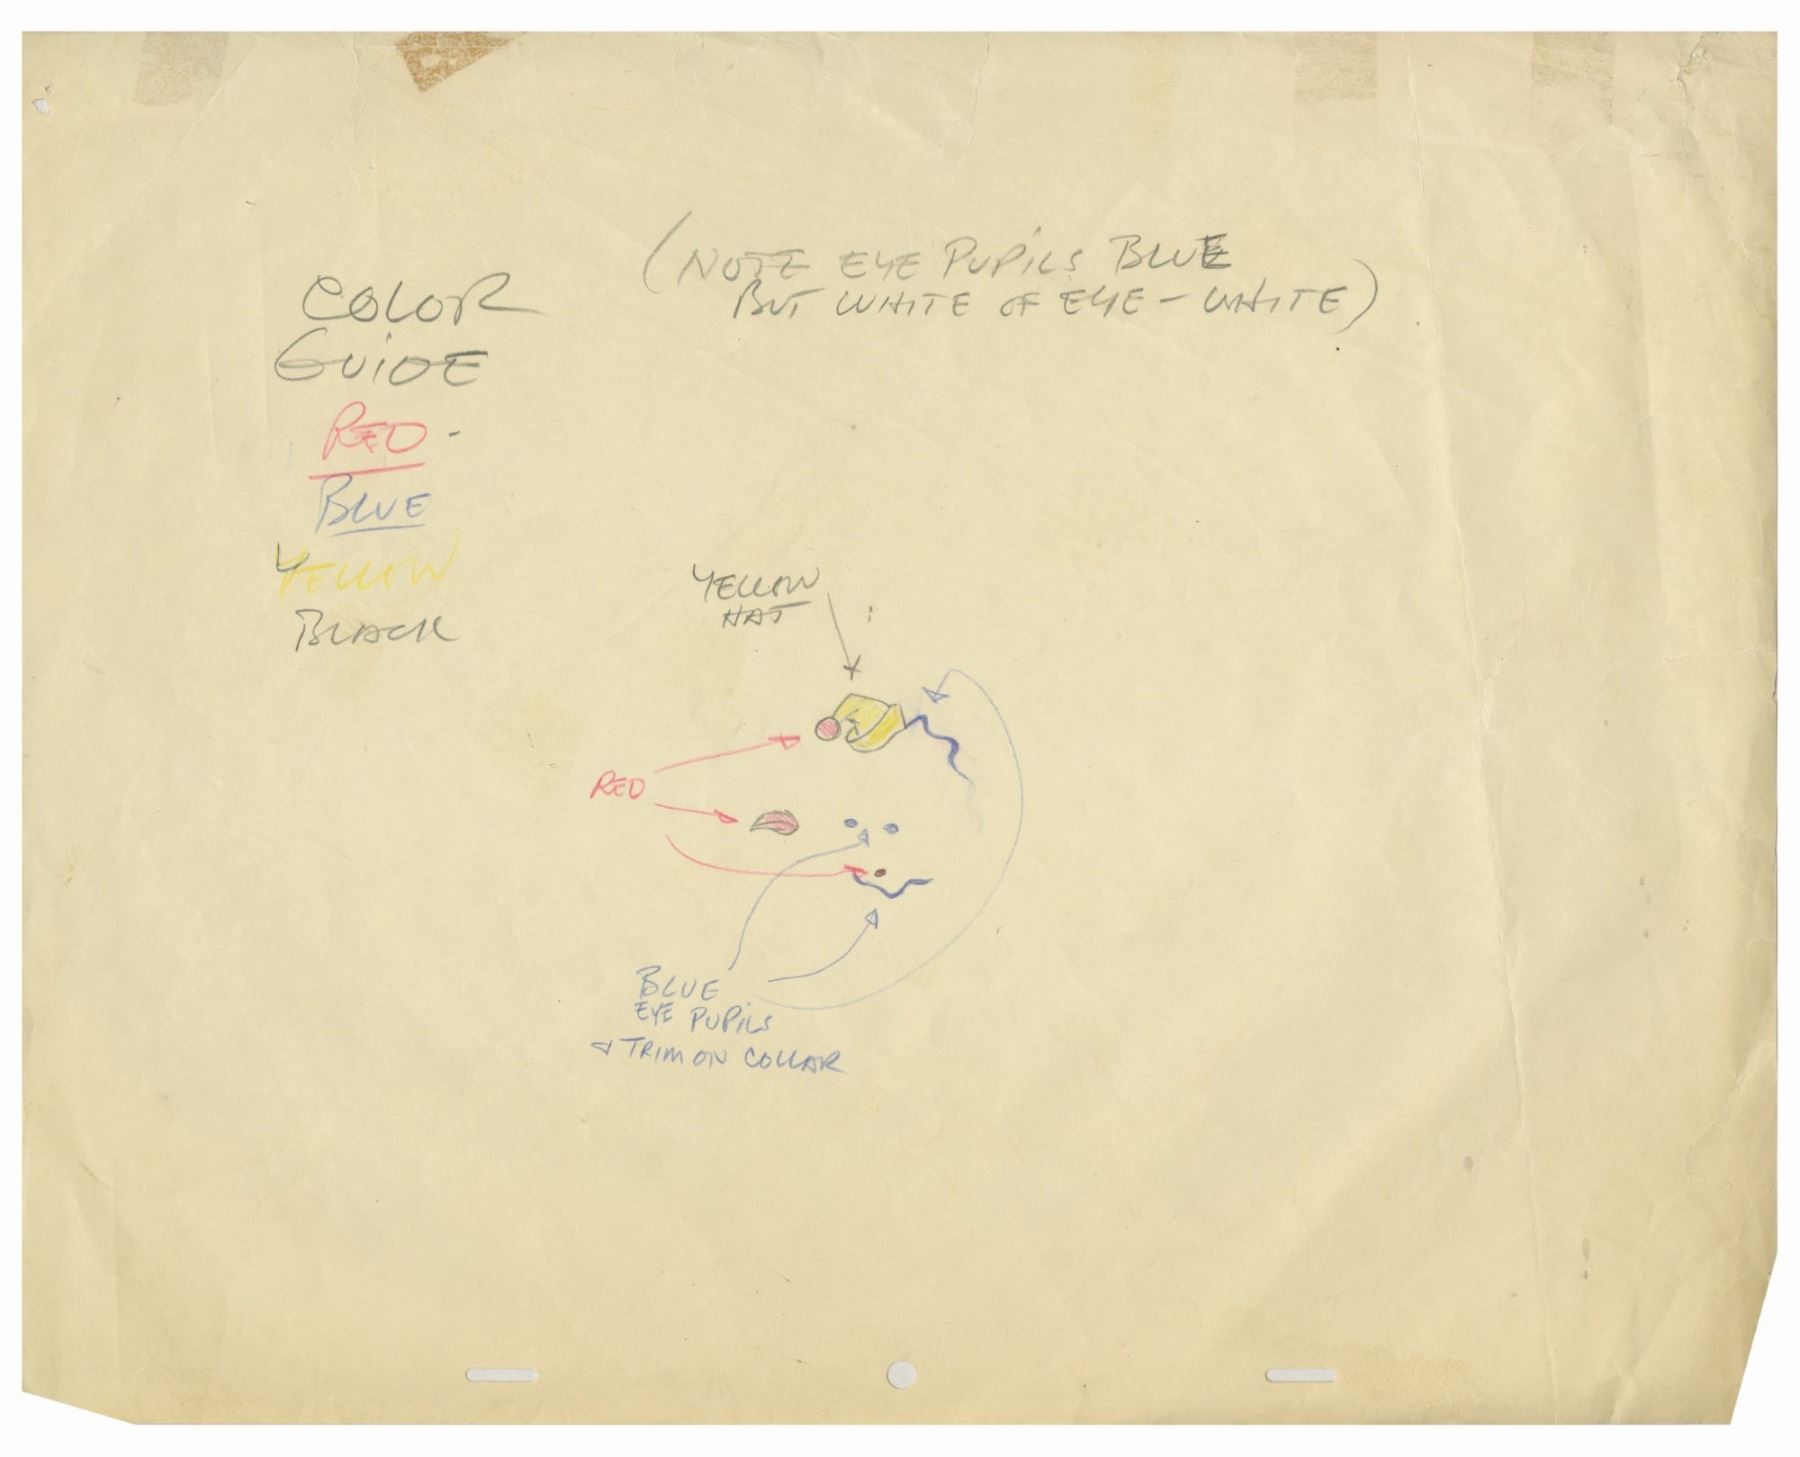 (NOTE EYE PUPILS BLUE
BUT WHITE OF EYE - WHITE)
COLOR
GUIDE
RED -
BLUE
YELLOW
BLACK
YELLOW
HAT
RED
BLUE
EYE PUPILS
& TRIM ON COLLAR